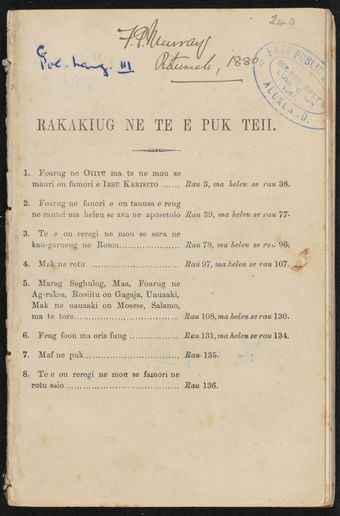 240
F. P. Murray
Rotumah, 1880.
Pol. Lang. III
FREE PUBLIC
SIR GEO. GREY'S
AUCKLAND.
RAKAKIUG NE TE E PUK TEII.
1. Foarug ne OIITU ma te ne mou se
mauri on famori e IESU KARISITO ...... Rau 3, ma heleu se rau 38.
2. Foarug ne fanori e on tauusa e reug
ne rantei ma heleu se ava ne aposetolo Rau 39, ma heleu se rau 77.
3. Te e on reregi ne mou se sara ne
kau-garueng ne Roma.................. Rau 78, ma heleu se rau 96.
4. Mak ne rotu ........................... Rau 97, ma heleu se rau 107.
5. Marag Saghulog, Maa, Foarug ne
Ag-raksa, Rooiitu on Gagaja, Uauaaki,
Mak ne uauaaki on Mosese, Salamo,
ma te tore................................. Rau 108, ma heleu se rau 130.
6. Feag foou ma oris fuug .................. Rau 131, ma heleu se rau 134.
7. Maf ne puk................................. Rau 135.
8. Te e on reregi ne mou se famori ne
rotu saio.................................... Rau 136.